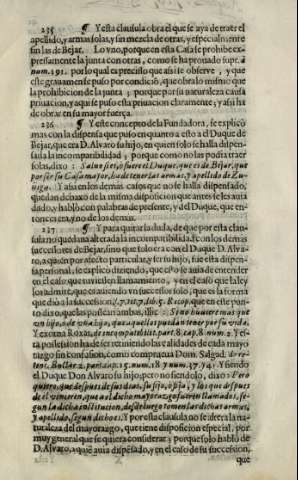 235 ¶ Y esta clausula obra el que se aya de traer el
apellido, y armas solas, y sin mezcla de otras, y especialmente
sin las de Bejar. Lo vno, porque en esta Casa se prohibe ex-
pressamente la junta con otras, como se ha prouado supr. à
num. 191. por lo qual es preciso que assi se observe, y que
este grauamen se puso por condicio, obrando lo mismo que
la prohibicion de la junta; porque por su naturaleza causa
priuacion, y aqui se puso esta priuacion claramente; y assi ha
de obrar en su mayor fuerça.
236 ¶ Y este concepto de la Fundadora, se explicò
mas con la dispensa que puso en quanto a esto a el Duque de
Bejar, que era D. Alvaro su hijo, en quien solo se halla dispen-
sada la incompatibilidad, y porque como no las podia traer
solas, dixo: Saluo si es, ò fuere el Duque, que es de Bejar, que
por ser su Casa mayor, ha de tener las armas, y apellido de Zu-
ñiga. Y assi en los demàs casos que no se halla dispensado,
quedan debaxo de la misma disposicion que antes se les auia
dado, y hablò con palabras de presente, y del Duque, que en-
tonces era, y no de los demàs.
237 ¶ Y para quitar la duda, de que por esta clau-
sula no quedaua alterada la incompatibilidad con los demàs
successores de Bejar, sino que solo era con el Duque D. Alva-
ro, a quien por afecto particular, y ser su hijo, fue esta dispensa
personal, se explicò diziendo, que esto se auia de entender
en el caso que vuiessen llamamiento, y en el caso que la ley
los admite, que es auiendo vn successor solo, que es la forma
que diò a la succession, l. 7. tit. 7. lib. 5. Recop. que en este pun-
to dixo, que las posean ambas, illic: Sino huviere mas que
vn hijo, ò vna hija, que aquel los puedan tener por su vida.
Y exorna Roxas, de incompatibilit. part. 8. cap. 8. num. 2. Y es-
ta possession ha de ser reteniendo las calidades de cada mayo-
razgo sin confusion, como comprueua Dom. Salgad. de re-
tent. Bullar. 2. part. cap. 15. num. 18. y num. 37. 74. Y siendo
el Duque Don Alvaro su hijo, pero no siendolo, dixo: Pero
quiero, que despues de sus dias, su hijo, ò hija, y los que despues
de el vinieren, que a el dicho mayorazgo fueren llamados, se-
gun la dicha institucion, desde luego tomen las dichas armas,
y apellido, segun dicho es. Y por esta clausula no se altera la na-
turaleza del mayorazgo, que tiene disposicion especial, por
muy general que se quiera considerar; porque solo hablò de
D. Alvaro, a quien auia dispensado, y en el caso de su succession,
que